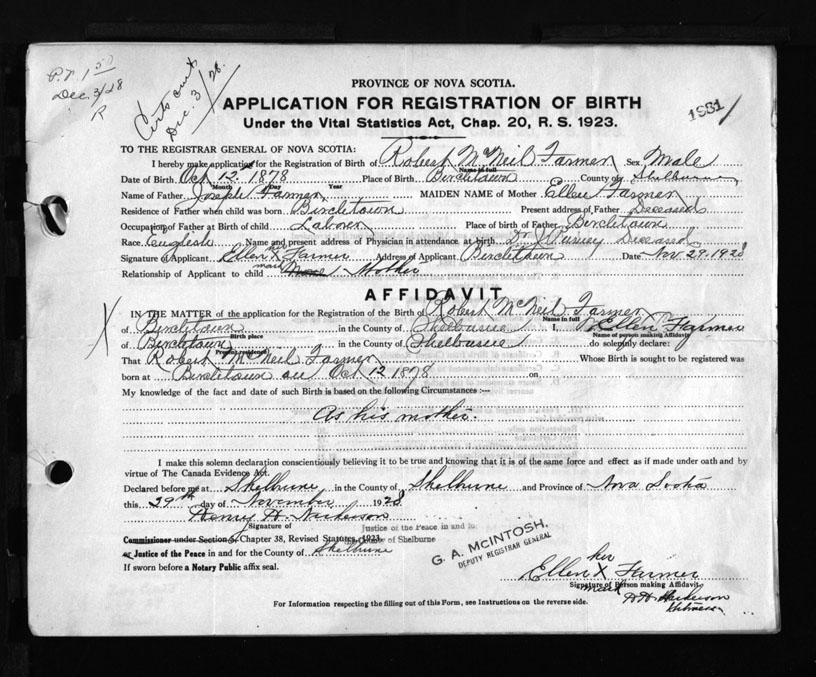 P.T. 1 50
Dec. 3/28
R
Certs cut
Dec. 3/28.
1931
PROVINCE OF NOVA SCOTIA.
APPLICATION FOR REGISTRATION OF BIRTH
Under the Vital Statistics Act, Chap. 20, R. S. 1923.
TO THE REGISTRAR GENERAL OF NOVA SCOTIA:
I hereby make application for the Registration of Birth of Robert McNeil Farmer Sex Male
Name in full
Date of Birth Oct 12 1878 Place of Birth Birchtown County of Shelburne
Month Day Year
Name of Father Joseph Farmer MAIDEN NAME of Mother Ellen Farmer
Residence of Father when child was born Birchtown Present address of Father Deceased
Occupation of Father at Birth of child Laborer Place of birth of Father Birchtown
Race English Name and present address of Physician in attendance at birth Dr Deceased
Signature of Applicant Ellen her X mark Farmer Address of Applicant Birchtown Date Nov 29, 1928
Relationship of Applicant to child Mother
AFFIDAVIT
IN THE MATTER of the application for the Registration of the Birth of Robert McNeil Farmer
Name in full
of Birchtown in the County of Shelburne I, Ellen Farmer
Birth place Name of person making Affidavit
of Birchtown in the County of Shelburne do solemnly declare:
Present residence
That Robert McNeil Farmer Whose Birth is sought to be registered was
born at Birchtown on Oct 12 1878 on
My knowledge of the fact and date of such Birth is based on the following Circumstances :—
As his mother.
I make this solemn declaration conscientiously believing it to be true and knowing that it is of the same force and effect as if made under oath and by
virtue of The Canada Evidence Act.
Declared before me at Shelburne in the County of Shelburne and Province of Nova Scotia
this 29th day of November 1928
Henry H. Nickerson
Signature of Justice of the Peace in and for
Commissioner under Section of Chapter 38, Revised Statutes, 1923 of Shelburne
or Justice of the Peace in and for the County of Shelburne
If sworn before a Notary Public affix seal.
G. A. McINTOSH,
DEPUTY REGISTRAR GENERAL
her
Ellen X Farmer
Signature of Person making Affidavit
mark
H. H. Nickerson
Witness
For Information respecting the filling out of this Form, see Instructions on the reverse side.